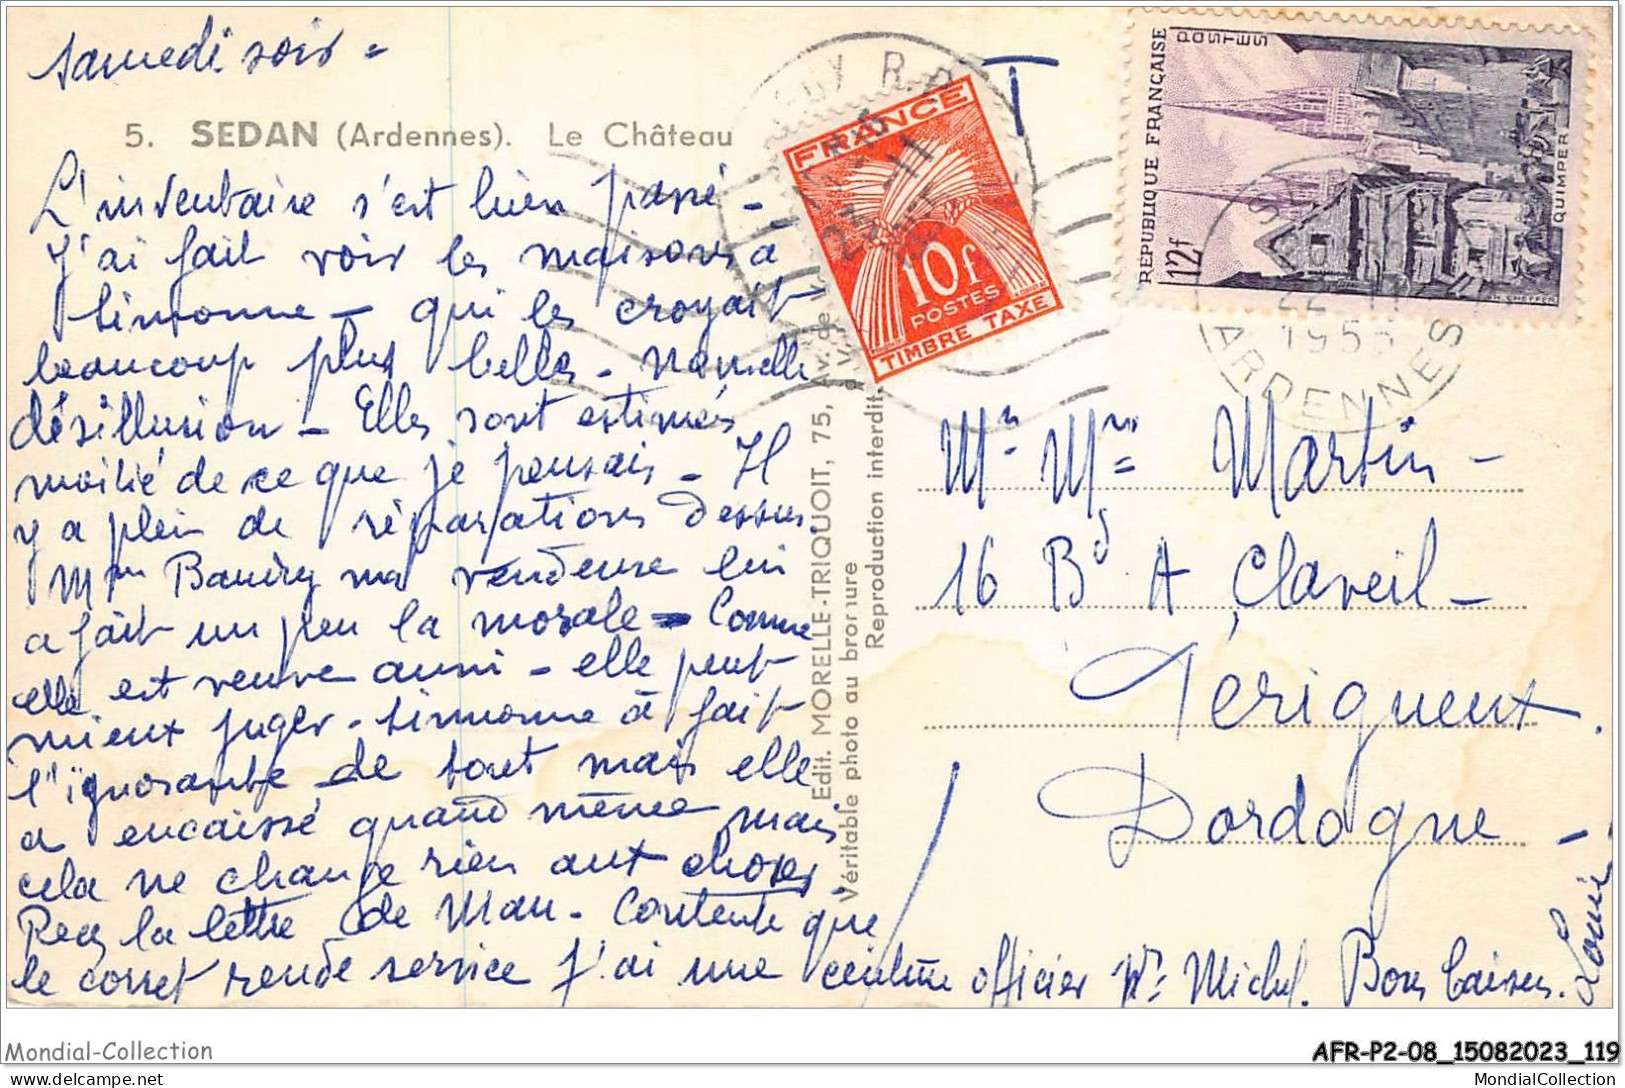 Samedi soir =
5. SEDAN (Ardennes). Le Château
L'inventaire s'est bien passé -
J'ai fait voir les maisons à
Simonne - qui les croyait
beaucoup plus belles - Nouvelle
désillusion - Elles sont estimés
moitié de ce que je pensais - Il
y a plein de réparations dessus.
Mme Baudry ma vendeuse lui
a fait un peu la morale - Comme
elle est veuve aussi - elle peut
mieux juger - Simonne à fait
l'ignorante de tout mais elle
a encaissé quand même mais
cela ne change rien aux choses.
Reçu la lettre de Mau - Contente que
le corset rende service J'ai une ceinture officier Mr Michel. Bons baisers.
Louise
FRANCE
10f
POSTES
TIMBRE TAXE
T
RÉPUBLIQUE FRANÇAISE
POSTES
12f
QUIMPER
ARDENNES
Mr Mme Martin -
16 Bd A Claveil -
Périgueux.
Dordogne -
Edit. MORELLE-TRIQUOIT, 75, Av. de
Véritable photo au bromure
Reproduction interdit.
Mondial-Collection
AFR-P2-08_15082023_119
delcampe.net
MondialCollection